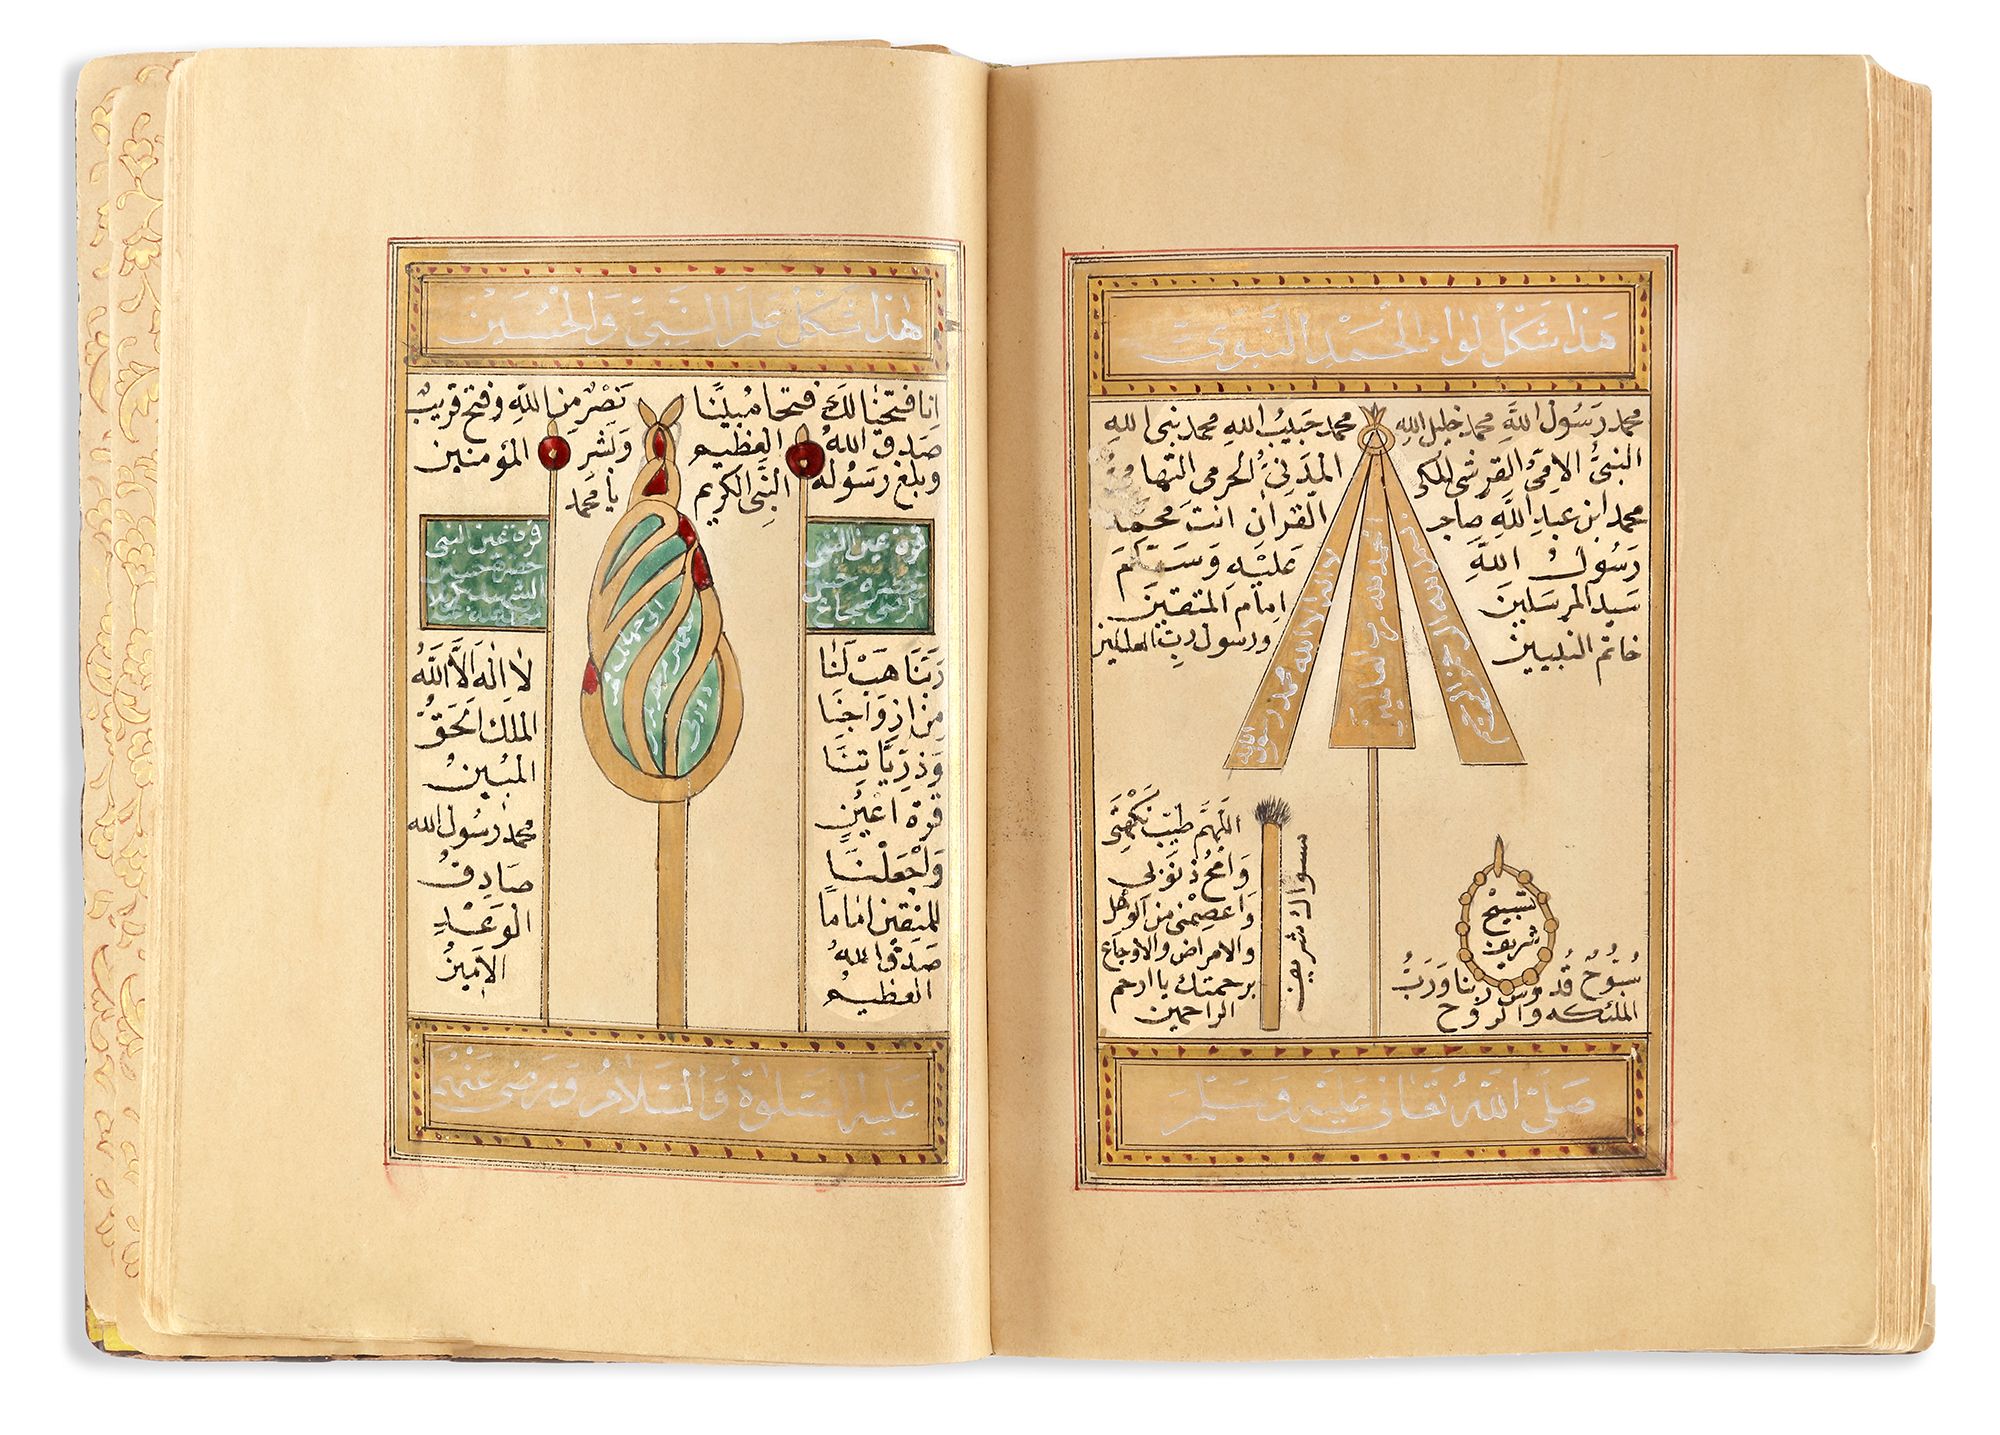 هذا شكل لواء الحمد النبوي
محمد رسول الله محمد خليل الله محمد حبيب الله محمد نبي الله
النبي الامي القرشي المكي المدني الحرمي التهامي
محمد ابن عبد الله صاحب القران انت محمد
رسول الله عليه وسلم
سيد المرسلين امام المتقين
خاتم النبيين ورسول رب العالمين
بسم الله الرحمن الرحيم
الحمد لله رب العالمين
لا اله الا الله محمد رسول الله
تسبيح
شريف
سبوح قدوس ربنا ورب
الملئكه والروح
سواك شريف
اللهم طيب نكهتي
وامح ذنوبي
واعصمني من الوحل
والامراض والاوجاع
برحمتك يا ارحم
الراحمين
صلى الله تعالى عليه وسلم
هذا شكل علم النبي والحسين
انا فتحنا لك فتحا مبينا نصر من الله وفتح قريب
صدق الله العظيم وبشر المؤمنين
وبلغ رسوله النبي الكريم يا محمد
قرة عين النبي
قرة عين النبي
ربنا هب لنا
من ازواجنا
وذرياتنا
قرة اعين
واجعلنا
للمتقين اماما
صدق الله
العظيم
لا اله الا الله
الملك الحق
المبين
محمد رسول الله
صادق
الوعد
الامين
عليه الصلوة والسلام ورضي عنهم